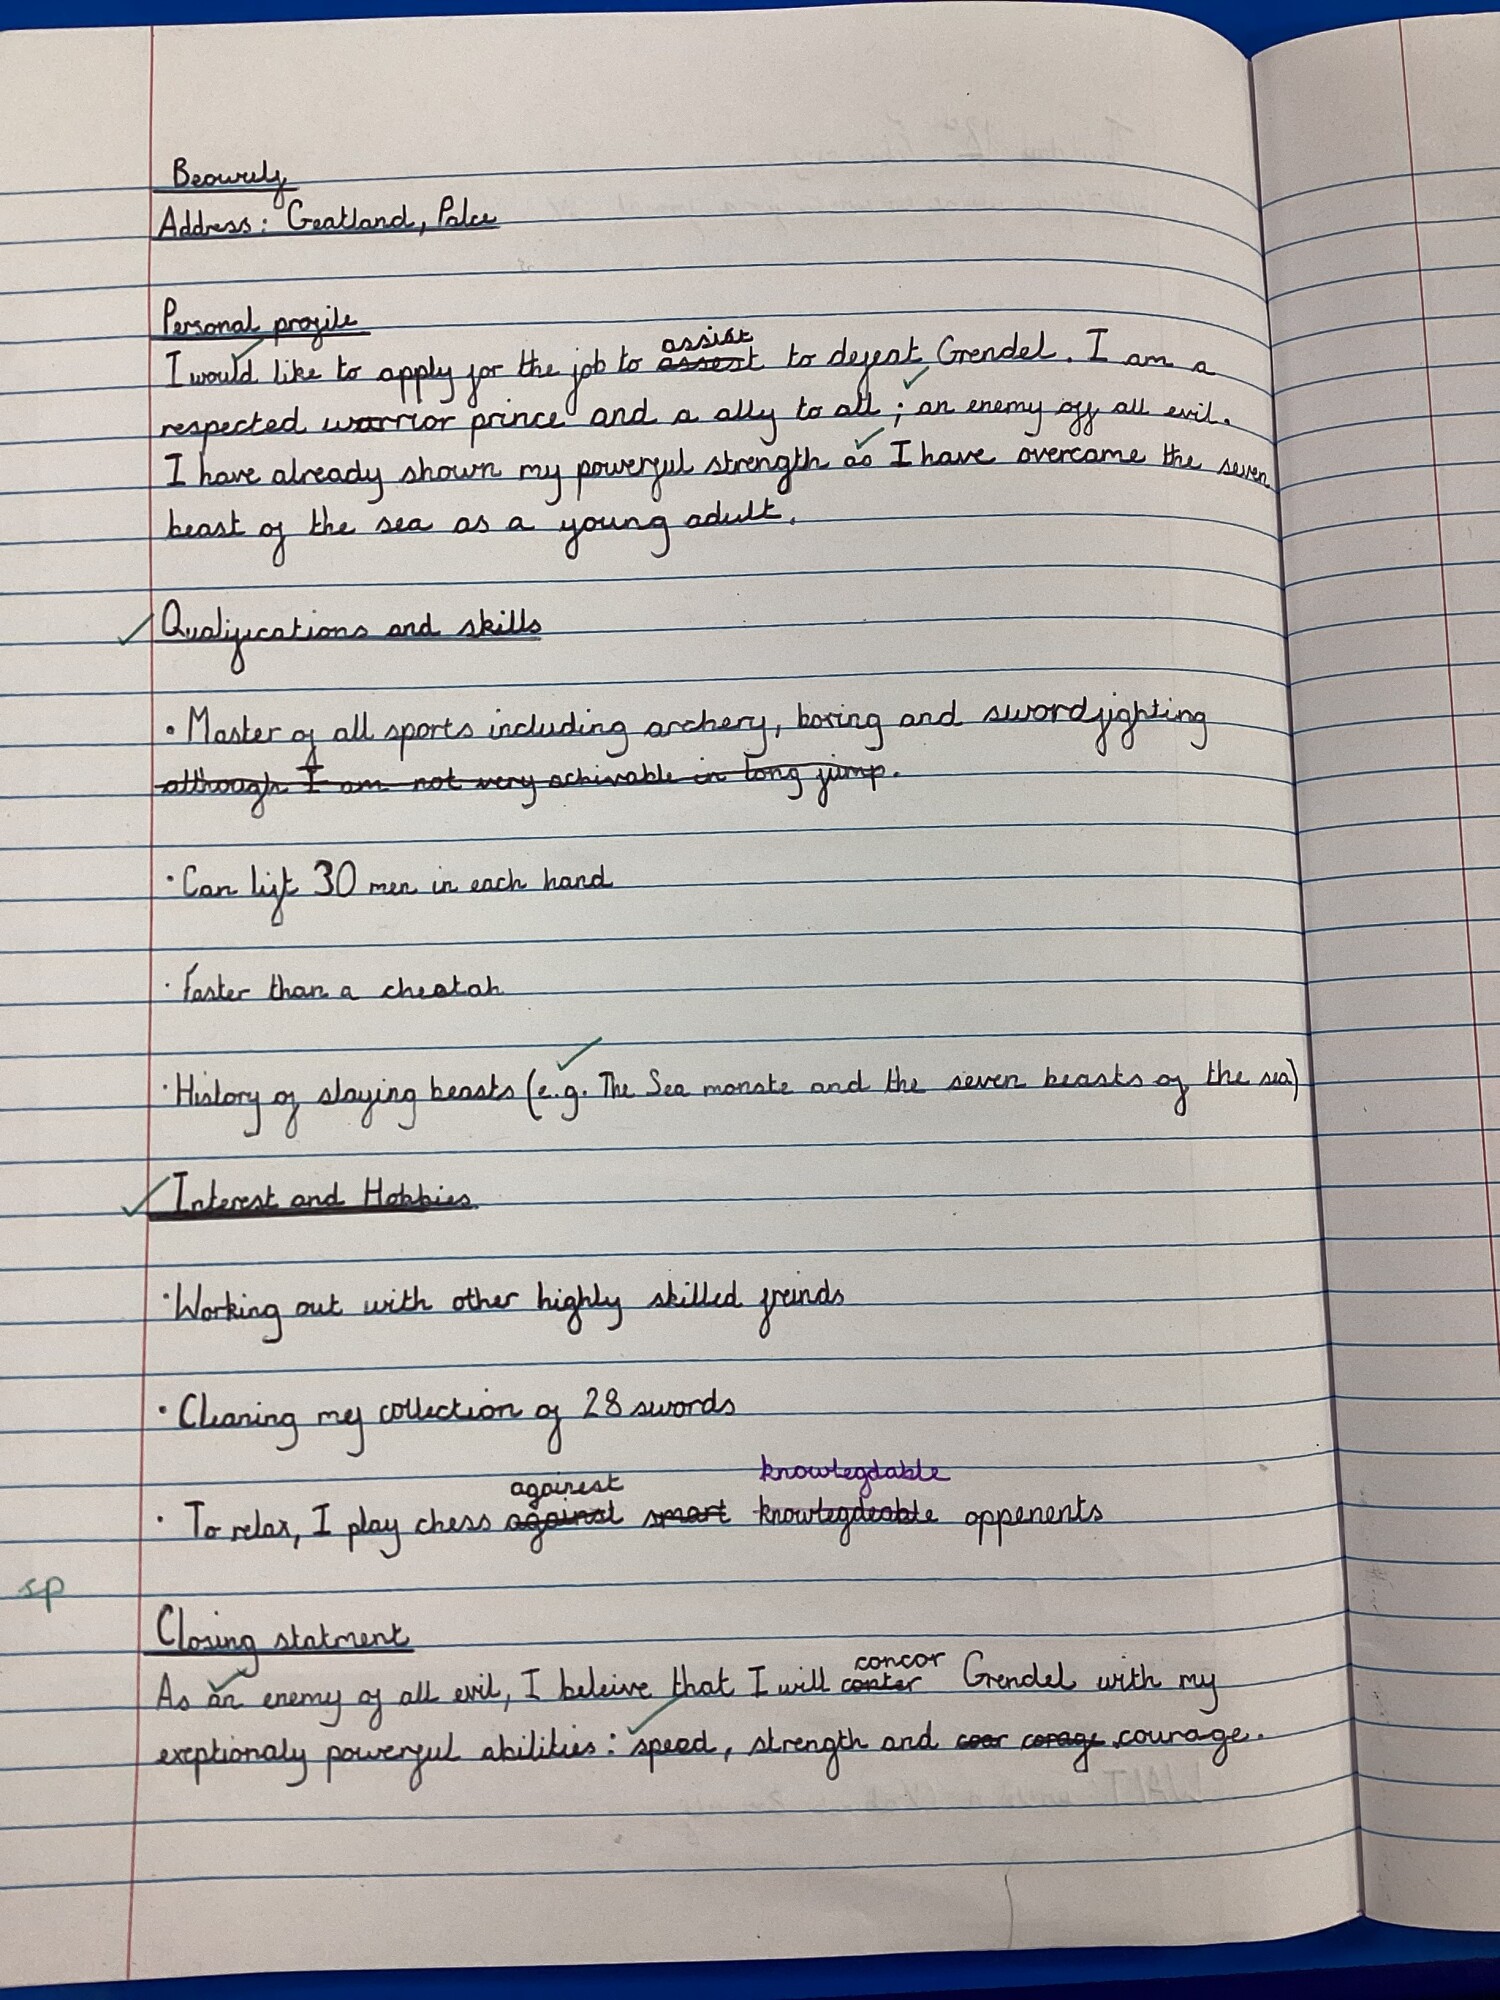 Beowulf
Address: Geatland, Palce
Personal profile
assist
I would like to apply for the job to assest to defeat Grendel. I am a
respected warrior prince and a ally to all ; an enemy off all evil.
I have already shown my powerful strength as I have overcame the seven
beast of the sea as a young adult.
Qualifications and skills
• Master of all sports including archery, boxing and swordfighting
although I am not very achivable in long jump.
• Can lift 30 men in each hand
• Faster than a cheetah
• History of slaying beasts (e.g. The Sea monste and the seven beasts of the sea)
Interest and Hobbies
• Working out with other highly skilled freinds
• Cleaning my collection of 28 swords
againest knowlegdable
• To relax, I play chess against smart knowlegdeable oppenents
sp
Closing statment
concor
As an enemy of all evil, I beleive that I will conter Grendel with my
exeptionaly powerful abilities: speed, strength and coor corage courage.